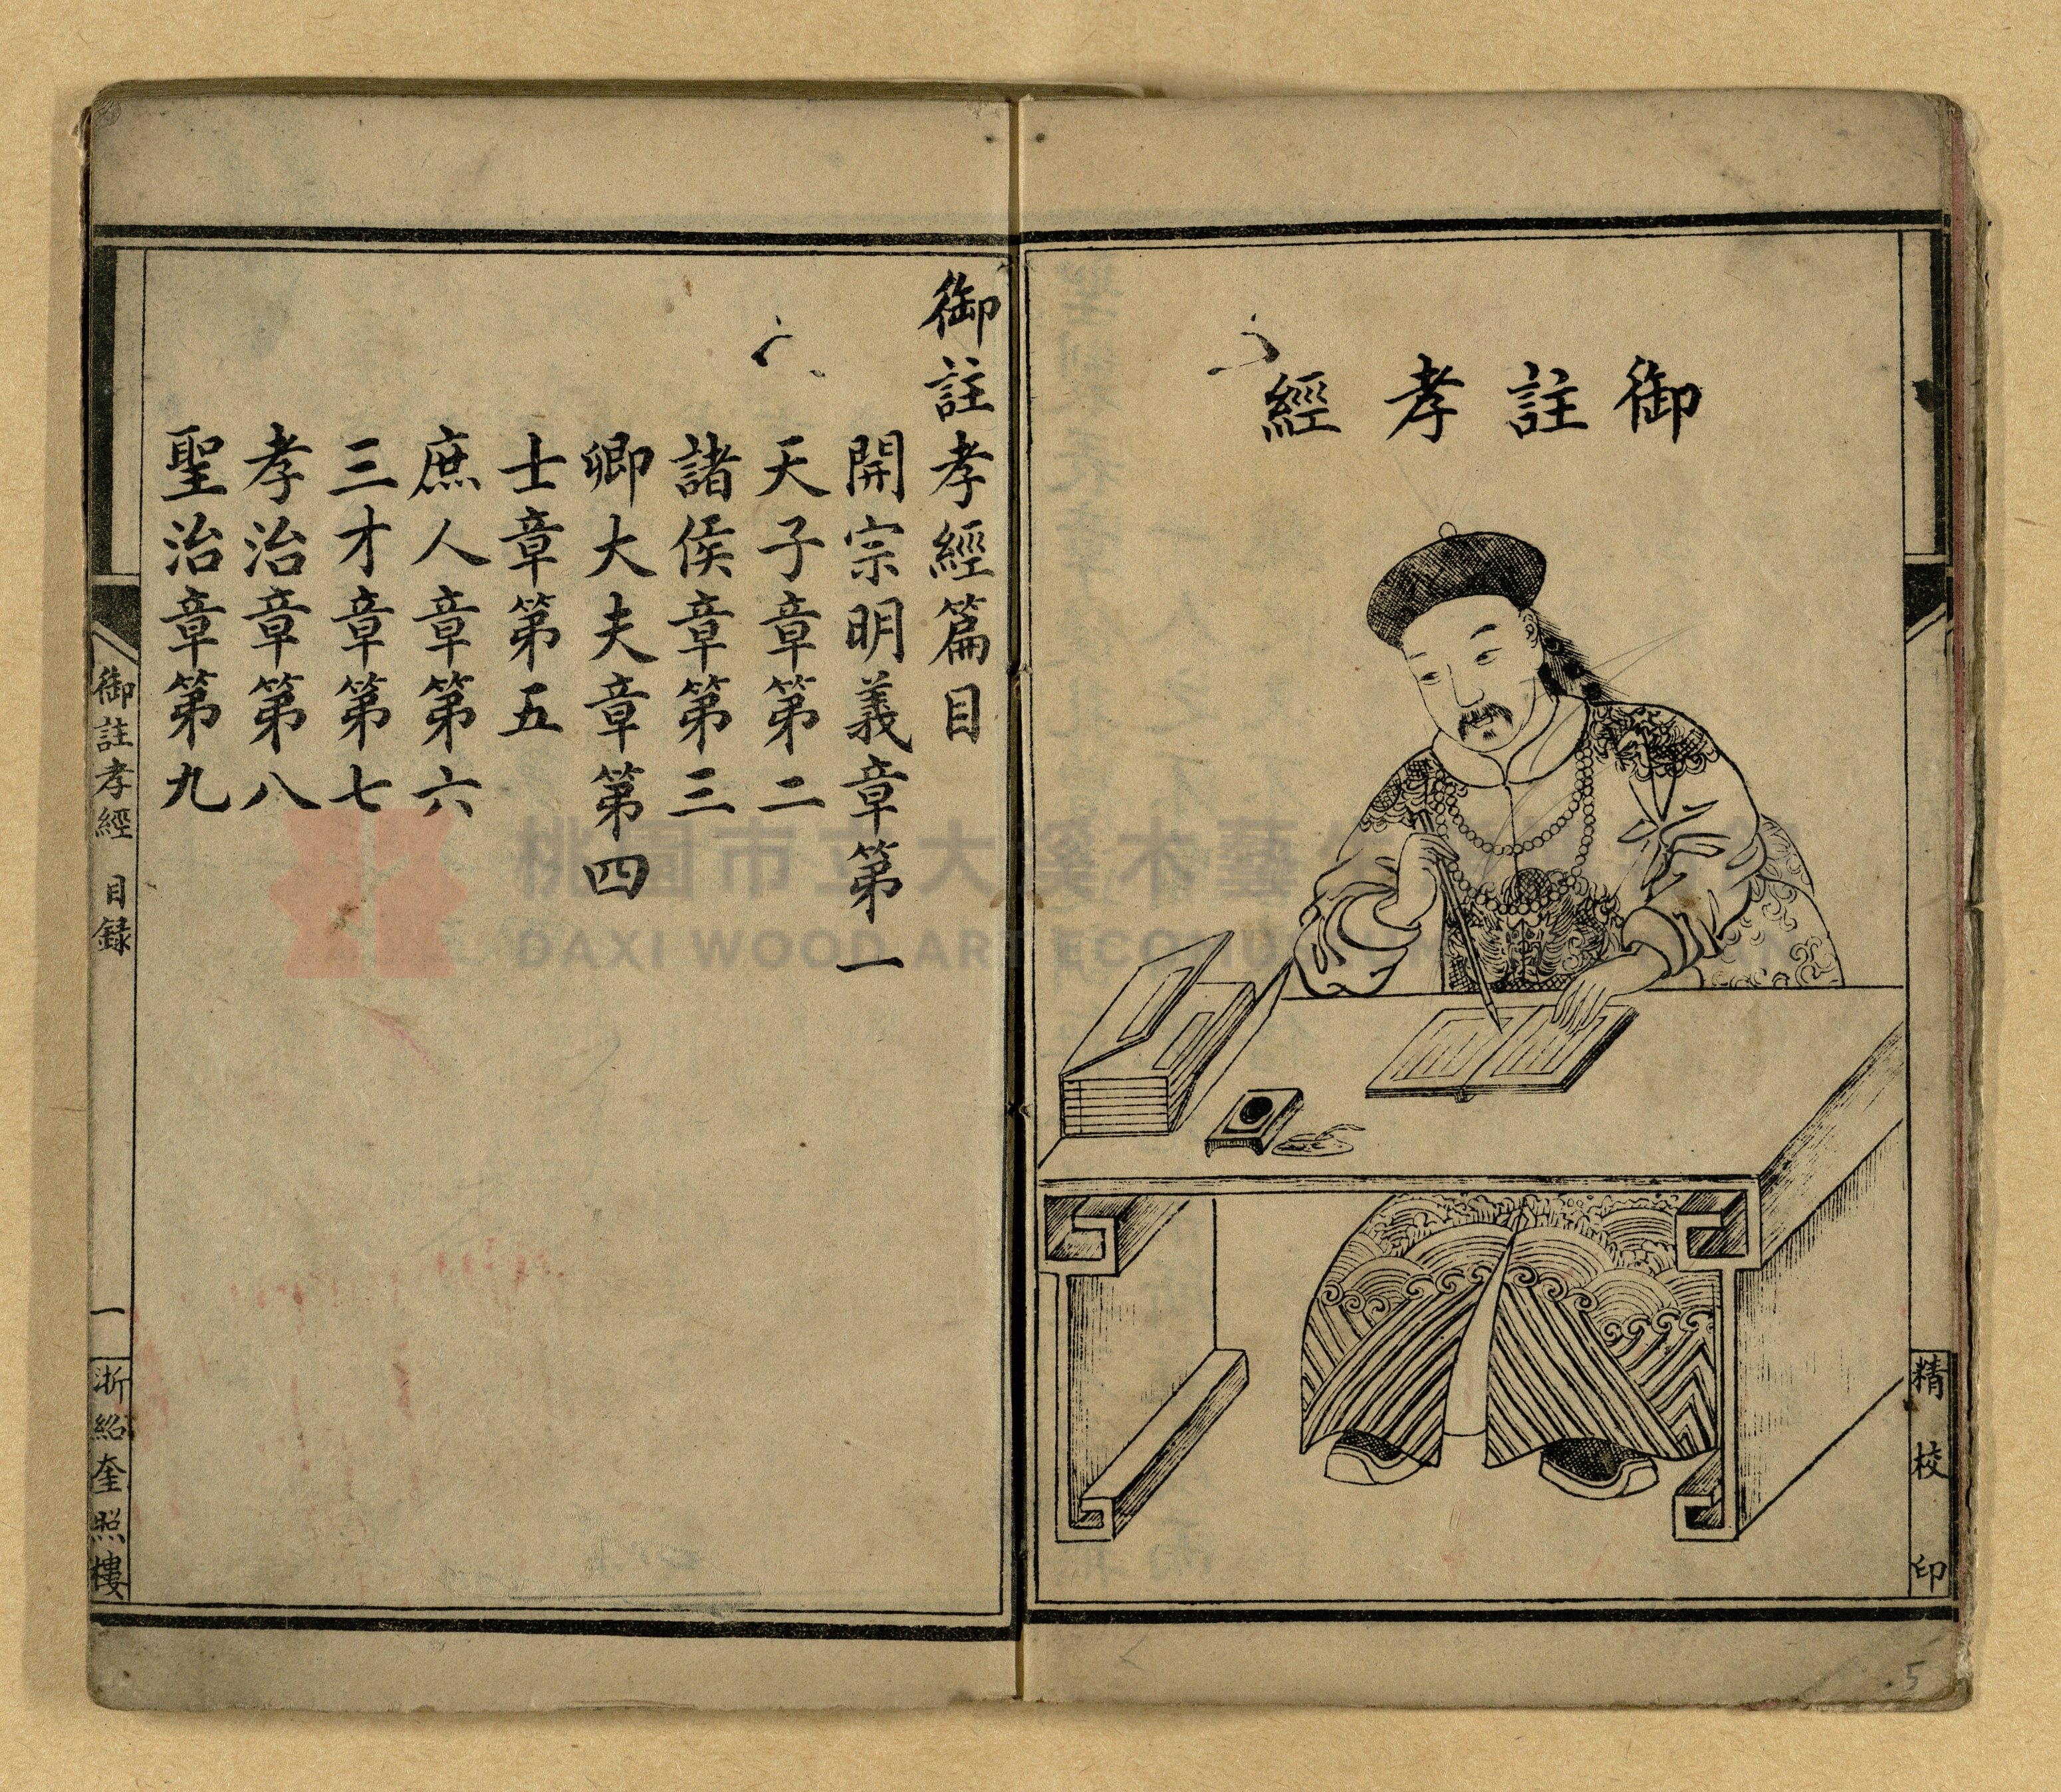 御註孝經
精校印
御註孝經篇目
開宗明義章第一
天子章第二
諸侯章第三
卿大夫章第四
士章第五
庶人章第六
三才章第七
孝治章第八
聖治章第九
御註孝經 目録 一 浙紹奎照樓
桃園市立大溪木藝
DAXI WOOD ART ECOMUSEUM
5